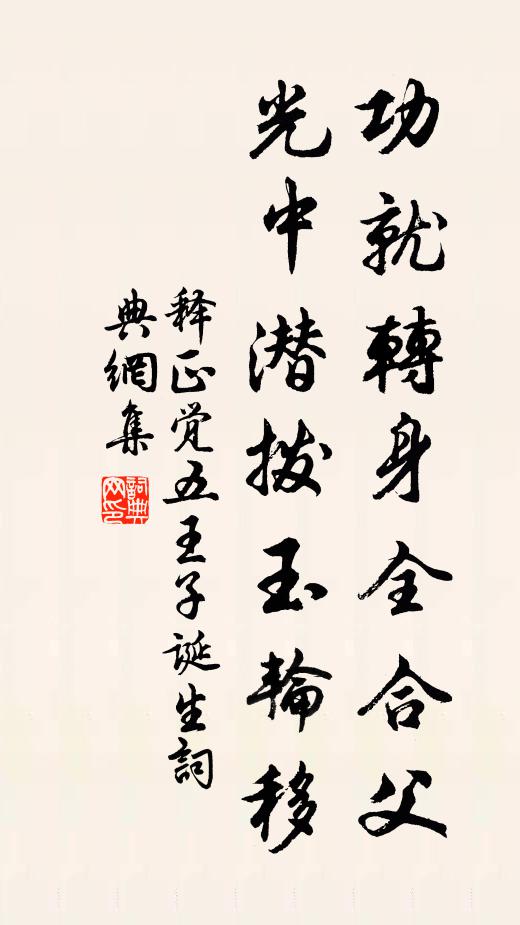 功就轉身全合父
光中潜拨玉輪移
释正觉五王子誕生詞
典網集
詞典網印